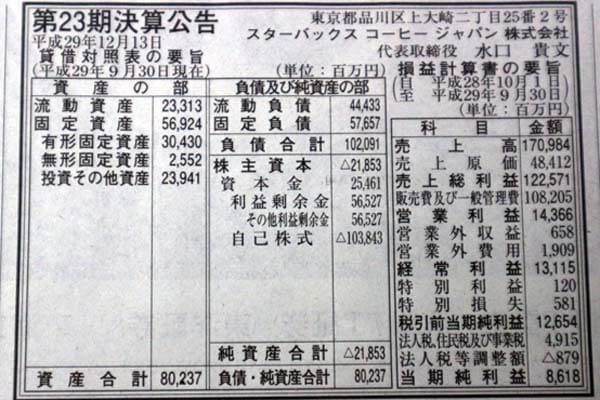 第23期決算公告
平成29年12月13日
東京都品川区上大崎二丁目25番2号
スターバックス コーヒー ジャパン 株式会社
代表取締役 水口 貴文
貸借対照表の要旨
(平成29年9月30日現在) (単位：百万円)
資産の部
流動資産 23,313
固定資産 56,924
有形固定資産 30,430
無形固定資産 2,552
投資その他資産 23,941
資産合計 80,237
負債及び純資産の部
流動負債 44,433
固定負債 57,657
負債合計 102,091
株主資本 △21,853
資本金 25,461
利益剰余金 56,527
その他利益剰余金 56,527
自己株式 △103,843
純資産合計 △21,853
負債・純資産合計 80,237
損益計算書の要旨
(自 平成28年10月1日
至 平成29年9月30日)
(単位：百万円)
科目 金額
売上高 170,984
売上原価 48,412
売上総利益 122,571
販売費及び一般管理費 108,205
営業利益 14,366
営業外収益 658
営業外費用 1,909
経常利益 13,115
特別利益 120
特別損失 581
税引前当期純利益 12,654
法人税、住民税及び事業税 4,915
法人税等調整額 △879
当期純利益 8,618